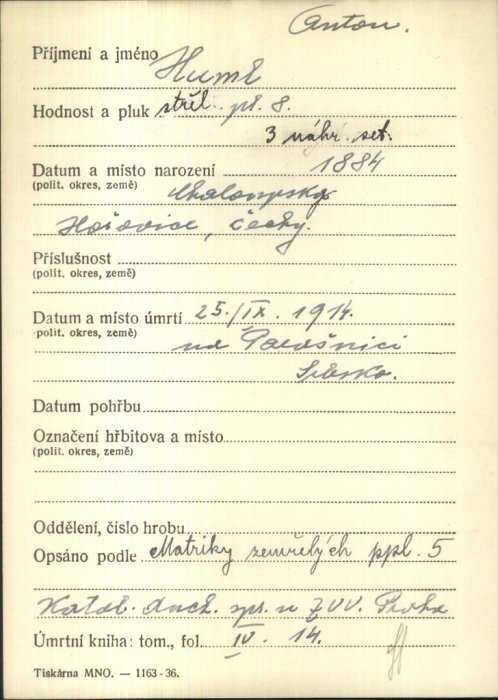 Anton.
Příjmení a jméno Huml
Hodnost a pluk střel. pl. 8.
3 náhr. set.
Datum a místo narození 1884
(polit. okres, země) Chaloupky
Hořovice, Čechy.
Příslušnost
(polit. okres, země)
Datum a místo úmrtí 25./IX. 1914.
(polit. okres, země) na
Srbsko.
Datum pohřbu
Označení hřbitova a místo
(polit. okres, země)
Oddělení, číslo hrobu
Opsáno podle Matriky zemřelých ppl. 5
Katol. duch. spr. u ZVV. Praha
Úmrtní kniha: tom., fol. IV. 14.
Tiskárna MNO. — 1163-36.